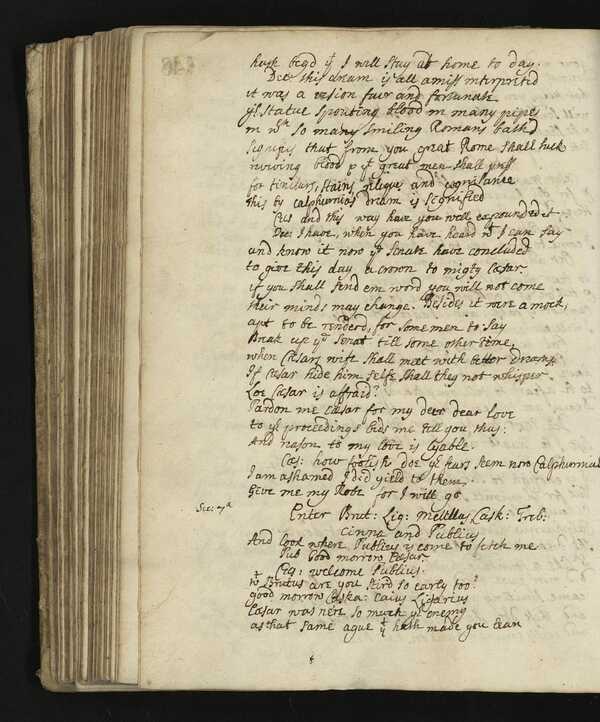 hath begd yt I will stay at home to day.
Dec: this dream is all amiss interprited
it was a vision fair and fortunate
yr Statue spouting blood in many pipes
in wch so many smiling Romans bathd
signifies that from you great Rome shall suck
reviving blood & yt great men shall press
for tincturs, stains reliques and cognisance
this by calphurnias dream is signified
Cæs and this way have you well expounded it
Dec: I have, when you have heard wt I can say
and know it now ye senate have concluded
to give this day a crown to migty Cæsar.
if you shall send em word you will not come
their minds may change. Besides it were a mock,
apt to be renderd, for some men to say
Break up ye Senat till some other time,
when Cæsars wife shall meet with better dreams
If Cæsar hide him selfe shall they not whisper
Loe Cæsar is affraid?
Pardon me Cæsar for my deer dear love
to yr proceedings bids me tell you this:
And reason to my love is lyable.
Cæs: how foolish doe yr fears seem now Calphurnia
I am ashamed I did yield to them.
Give me my Robe for I will go
Sce: 7a Enter Brut: Lig: Metellus Cask: Treb:
cinna and Publius
And look where Publius is come to fetch me
Pub Good morrow Cæsar.
welcome Publius.
wt Brutus are you stird so early too?
good morrow Caska: Caius Ligarius
Cæsar was nere so much yr enemy
as that same ague yt hath made you lean